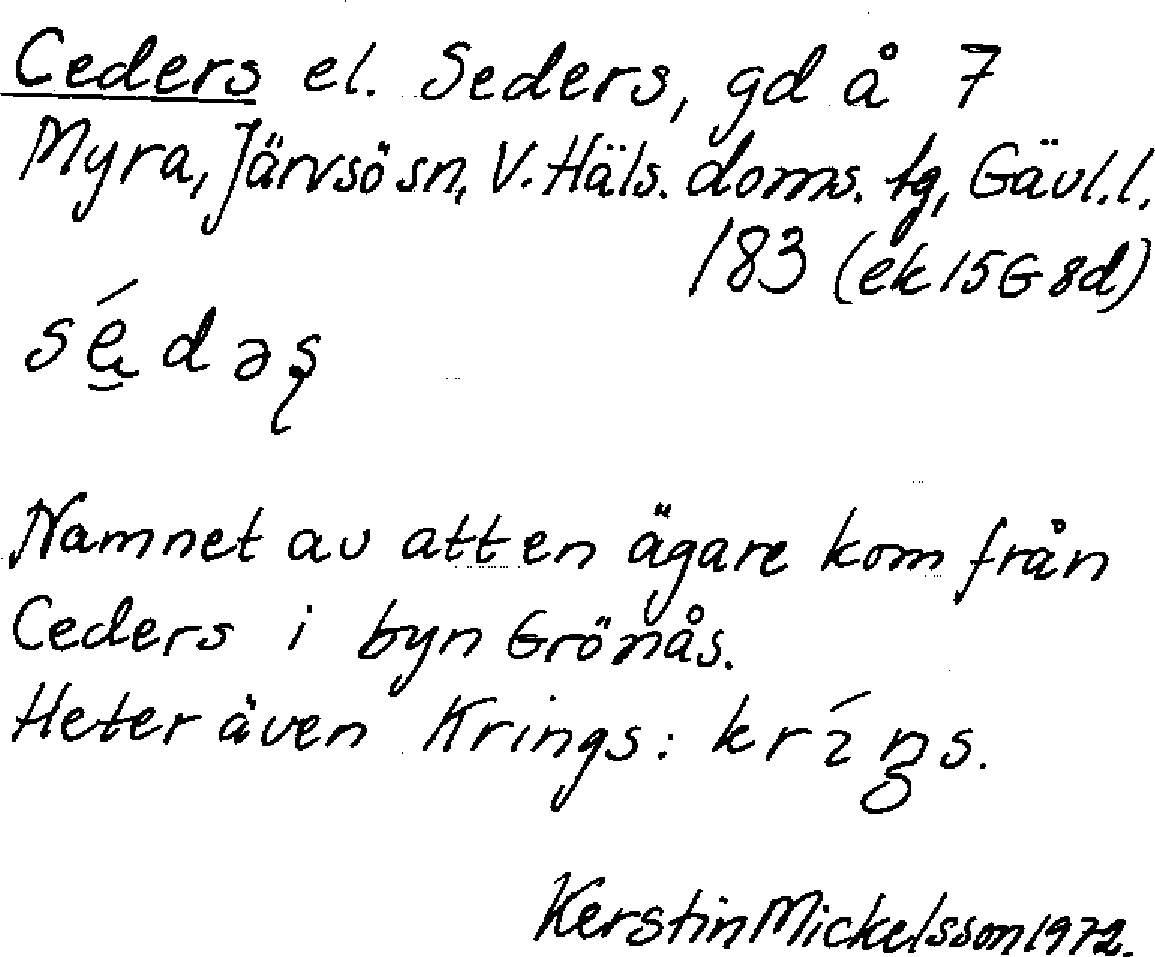 Ceders el. Seders, gd å 7
Myra, Järvsö sn, V. Häls. doms. tg, Gävl. l.
183 (ek 15G 8d)
Namnet av att en ägare kom från
Ceders i byn Grönås.
Heter även Krings: kríŋs.
Kerstin Mickelsson 1972.